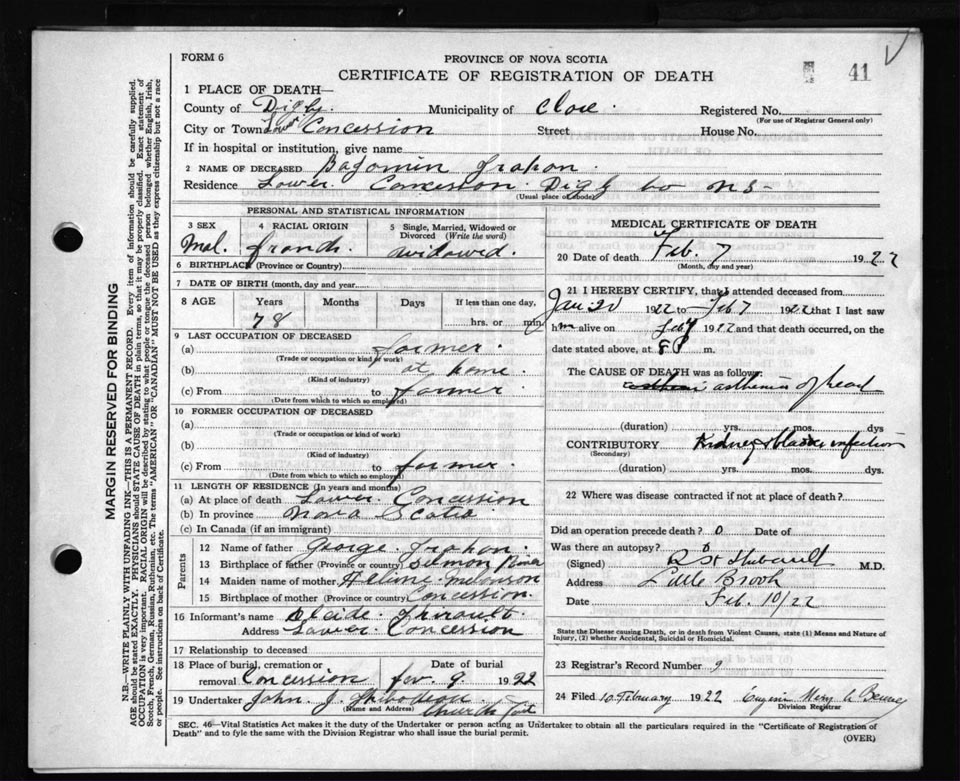 FORM 6
PROVINCE OF NOVA SCOTIA
CERTIFICATE OF REGISTRATION OF DEATH
41
1 PLACE OF DEATH—
County of Digby. Municipality of Clare. Registered No.
(For use of Registrar General only)
City or Town Concession Street House No.
If in hospital or institution, give name
2 NAME OF DECEASED Bagomin Trahon.
Residence Lower Concession Digby Co N.S—
(Usual place of abode)
PERSONAL AND STATISTICAL INFORMATION
3 SEX
Mal.
4 RACIAL ORIGIN
franch.
5 Single, Married, Widowed or Divorced (Write the word)
widowed.
6 BIRTHPLACE (Province or Country)
7 DATE OF BIRTH (month, day and year)
8 AGE Years Months Days If less than one day,
78 hrs. or min.
9 LAST OCCUPATION OF DECEASED
(a) farmer.
(Trade or occupation or kind of work)
(b) at home.
(Kind of industry)
(c) From to farmer
(Date from which to which so employed)
10 FORMER OCCUPATION OF DECEASED
(a)
(Trade or occupation or kind of work)
(b)
(Kind of industry)
(c) From to farmer.
(Date from which to which so employed)
11 LENGTH OF RESIDENCE (In years and months)
(a) At place of death Lower Concession
(b) In province Nova Scotia
(c) In Canada (if an immigrant)
Parents
12 Name of father George Trahon.
13 Birthplace of father (Province or country) Selmon River
14 Maiden name of mother Melonson
15 Birthplace of mother (Province or country) Concession.
16 Informant's name Thirault.
Address Lower Concession
17 Relationship to deceased
18 Place of burial, cremation or Date of burial
removal Concession fav. 9 1922
19 Undertaker John J. Thibodeau
(Name and Address) Church Point
MEDICAL CERTIFICATE OF DEATH
20 Date of death Feb. 7 1922
(Month, day and year)
21 I HEREBY CERTIFY, that I attended deceased from
Jan 20 1922 to Feb 7 1922 that I last saw
him alive on Feb 7 1922 and that death occurred, on the
date stated above, at 8 P m.
The CAUSE OF DEATH was as follows:
asthenia of heart
(duration) yrs. mos. dys
CONTRIBUTORY Kidney & bladder infection
(Secondary)
(duration) yrs. mos. dys.
22 Where was disease contracted if not at place of death?
Did an operation precede death? 0 Date of
Was there an autopsy? 0
(Signed) Thibault M.D.
Address Little Brook
Date Feb. 10/22
State the Disease causing Death, or in death from Violent Causes, state (1) Means and Nature of
Injury, (2) whether Accidental, Suicidal or Homicidal.
23 Registrar's Record Number 9
24 Filed 10 February 1922
Division Registrar
SEC. 46—Vital Statistics Act makes it the duty of the Undertaker or person acting as Undertaker to obtain all the particulars required in the "Certificate of Registration of
Death" and to fyle the same with the Division Registrar who shall issue the burial permit.
(OVER)
MARGIN RESERVED FOR BINDING
N.B.—WRITE PLAINLY WITH UNFADING INK—THIS IS A PERMANENT RECORD. Every item of information should be carefully supplied.
AGE should be stated EXACTLY. PHYSICIANS should STATE CAUSE OF DEATH in plain terms, so that it may be properly classified. Exact statement of
OCCUPATION is very important. RACIAL ORIGIN will be described by stating to what people or tongue the deceased person belonged whether English, Irish,
Scotch, French, German, Russian, Ruthenian, etc. The terms "AMERICAN" OR "CANADIAN" MUST NOT BE USED as they express citizenship but not a race
or people. See instructions on back of Certificate.